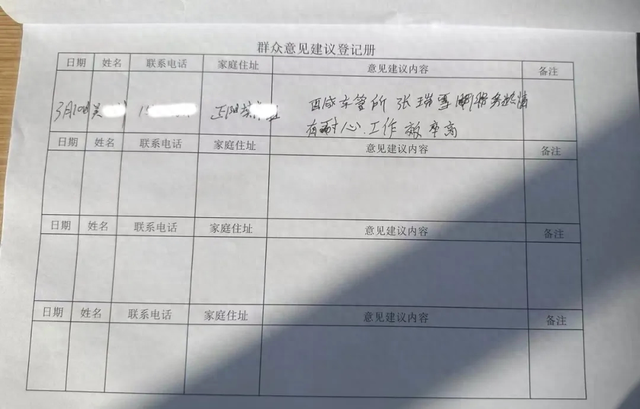 群众意见建议登记册
日期 姓名 联系电话 家庭住址 意见建议内容 备注
3月10日 吴 1 正阳 车管所 张瑞雪 服务热情
有耐心.工作效率高
日期 姓名 联系电话 家庭住址 意见建议内容 备注
日期 姓名 联系电话 家庭住址 意见建议内容 备注
日期 姓名 联系电话 家庭住址 意见建议内容 备注